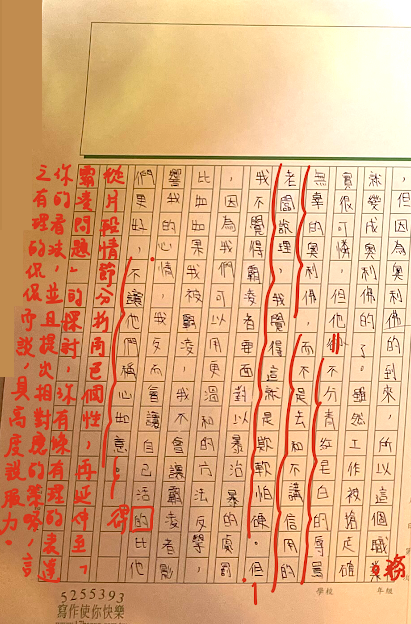 ，但因為他的到來，所以這個職務
就變成奧利佛的了。雖然工作被搶走確
實很可憐，但他卻不分青紅皂白的辱罵
無辜的奧利佛，而不是去和不講信用的
老闆說理，我覺得這就是欺軟怕硬。但
我不覺得霸凌要面對以暴治暴的處罰
，因為我們可以用更
比如果我被霸凌，我不會讓霸凌者影
響我的心情，反而會讓自己活的得比他
們更好，不讓他們稱心如意。
從片段情節分析角色個性，再延伸至「
霸凌問題」的探討，你有條有理的表達
你的看法，並且提出相對應的策略，言
之有理的侃侃而談，具高度說服力。
學校
年級
5255393
寫作使你快樂